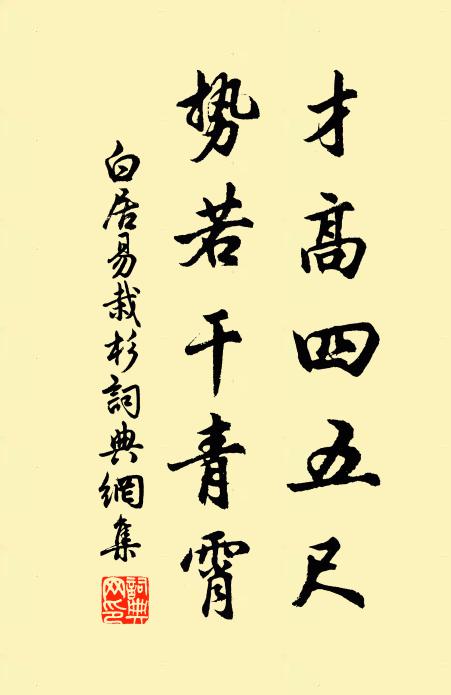 才高四五尺
勢若干青霄
白居易栽杉詞典網集
詞典網印